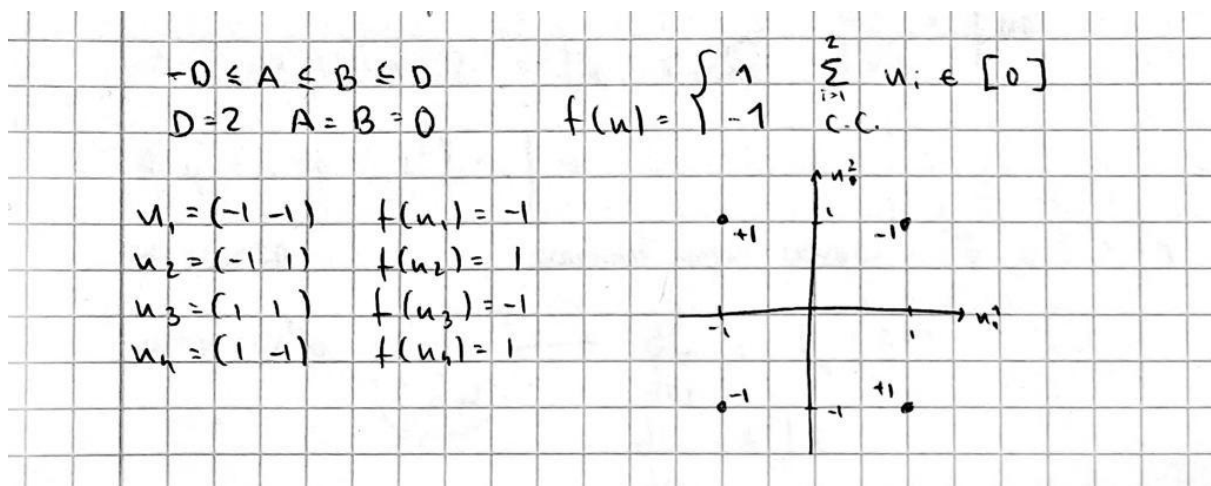 -D ≤ A ≤ B ≤ D
D=2 A = B = 0
f(u) = { 1 2 Σ i>1 u_i ∈ [0]
-1 c.c.
u_1 = (-1 -1) f(u_1) = -1
u_2 = (-1 1) f(u_2) = 1
u_3 = (1 1) f(u_3) = -1
u_4 = (1 -1) f(u_4) = 1
1
+1
-1
-1
1
-1
+1
-1